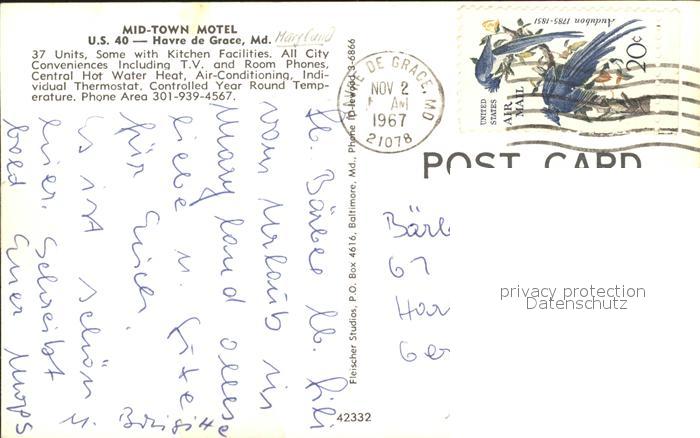 MID-TOWN MOTEL
U.S. 40 — Havre de Grace, Md. Maryland
37 Units, Some with Kitchen Facilities. All City
Conveniences Including T.V. and Room Phones,
Central Hot Water Heat, Air-Conditioning, Indi-
vidual Thermostat, Controlled Year Round Temp-
erature. Phone Area 301-939-4567.
Lb. Bärbel lb.
vom Urlaub in
Maryland alles
liebe u. Gute
für Euch.
Es ist schön
hier. Schreibt
bald Euer Mops
u. Brigitte
Fleischer Studios, P.O. Box 4616, Baltimore, Md., Phone Inlewood 3-6866
42332
HAVRE DE GRACE, MD
NOV 2
AM
1967
21078
Audubon 1785-1851
20c
UNITED STATES
AIR MAIL
POST CARD
Bärb
67
Har
Ger
privacy protection
Datenschutz